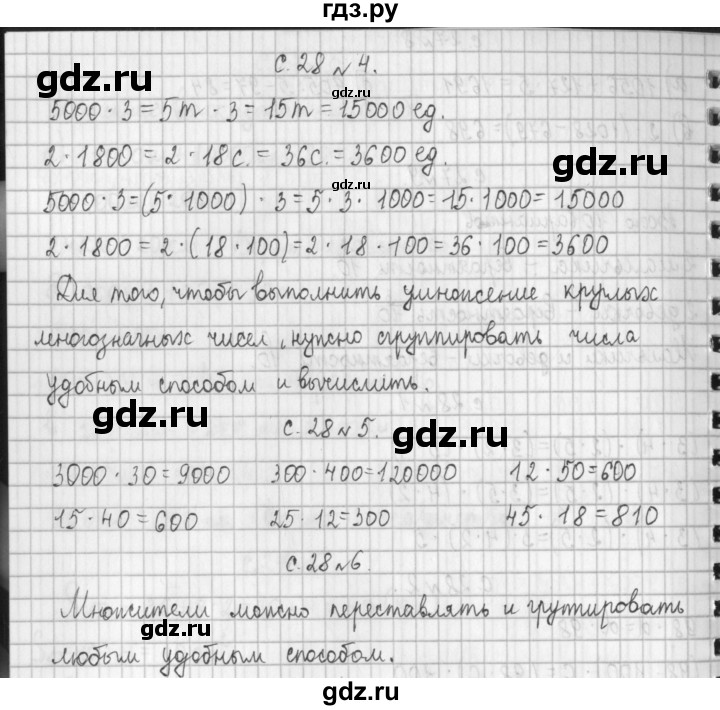 гдз.ру
с. 28 № 4.
gdz.ru
gdz.ru
5000 · 3 = 5т · 3 = 15т = 15000 ед.
2 · 1800 = 2 · 18с. = 36с. = 3600 ед.
gdz.ru
5000 · 3 = (5 · 1000) · 3 = 5 · 3 · 1000 = 15 · 1000 = 15000
2 · 1800 = 2 · (18 · 100) = 2 · 18 · 100 = 36 · 100 = 3600
Для того, чтобы выполнить умножение круглых
многозначных чисел, нужно сгруппировать числа
удобным способом и вычислить.
gdz.ru
с. 28 № 5.
gdz.ru
3000 · 30 = 9000 300 · 400 = 120000 12 · 50 = 600
15 · 40 = 600 25 · 12 = 300 45 · 18 = 810
с. 28 № 6.
gdz.ru
Множители можно переставлять и групировать
gdz.ru
любым удобным способом.
gdz.ru